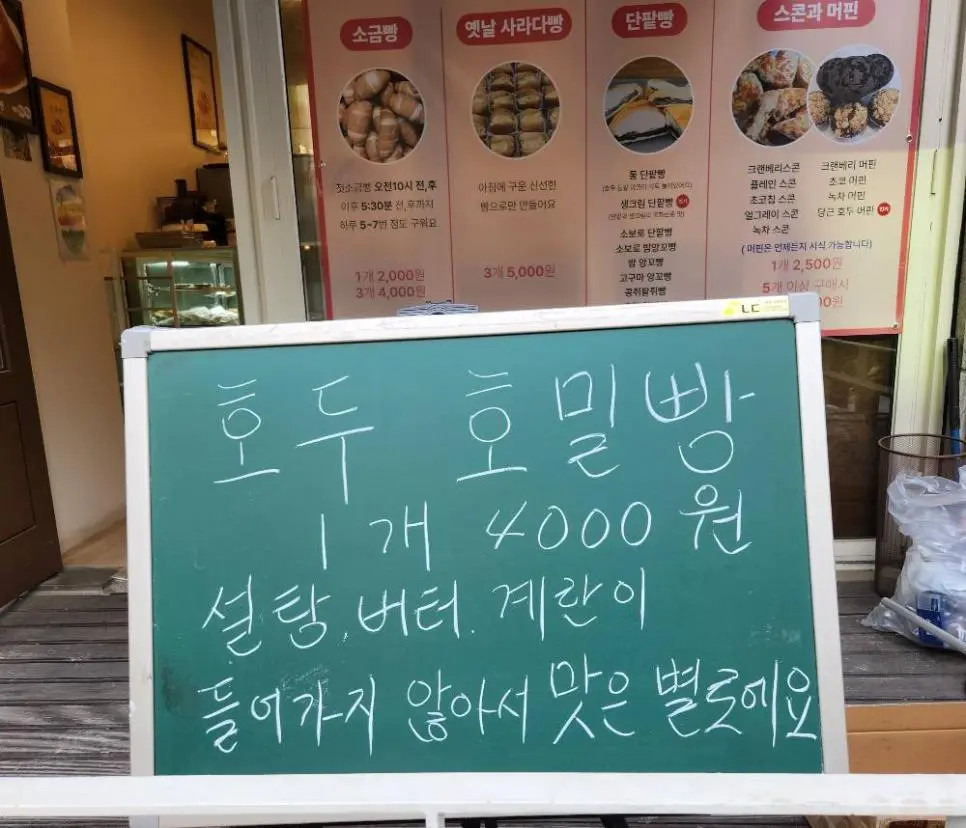 소금빵
옛날 사라다빵
단팥빵
스콘과 머핀
첫소금빵 오전10시 전,후
이후 5:30분 전,후까지
하루 5~7번 정도 구워요
1개 2,000원
3개 4,000원
아침에 구운 신선한
빵으로만 만들어요
3개 5,000원
통 단팥빵
생크림 단팥빵 인기
소보로 단팥빵
소보로 밤앙꼬빵
밤 앙꼬빵
고구마 앙꼬빵
콩쥐팥쥐빵
크랜베리스콘
플레인 스콘
초코칩 스콘
얼그레이 스콘
녹차 스콘
크랜베리 머핀
초코 머핀
녹차 머핀
당근 호두 머핀 인기
( 머핀은 언제든지 시식 가능합니다)
1개 2,500원
5개 이상 구매시
00원
호두 호밀빵
1개 4000원
설탕. 버터. 계란이
들어가지 않아서 맛은 별로에요